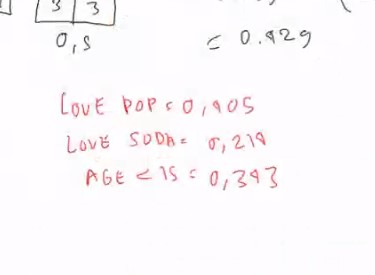 3 3
0,5 = 0.429
LOVE POP = 0,405
LOVE SODA = 0,214
AGE < 15 = 0,343